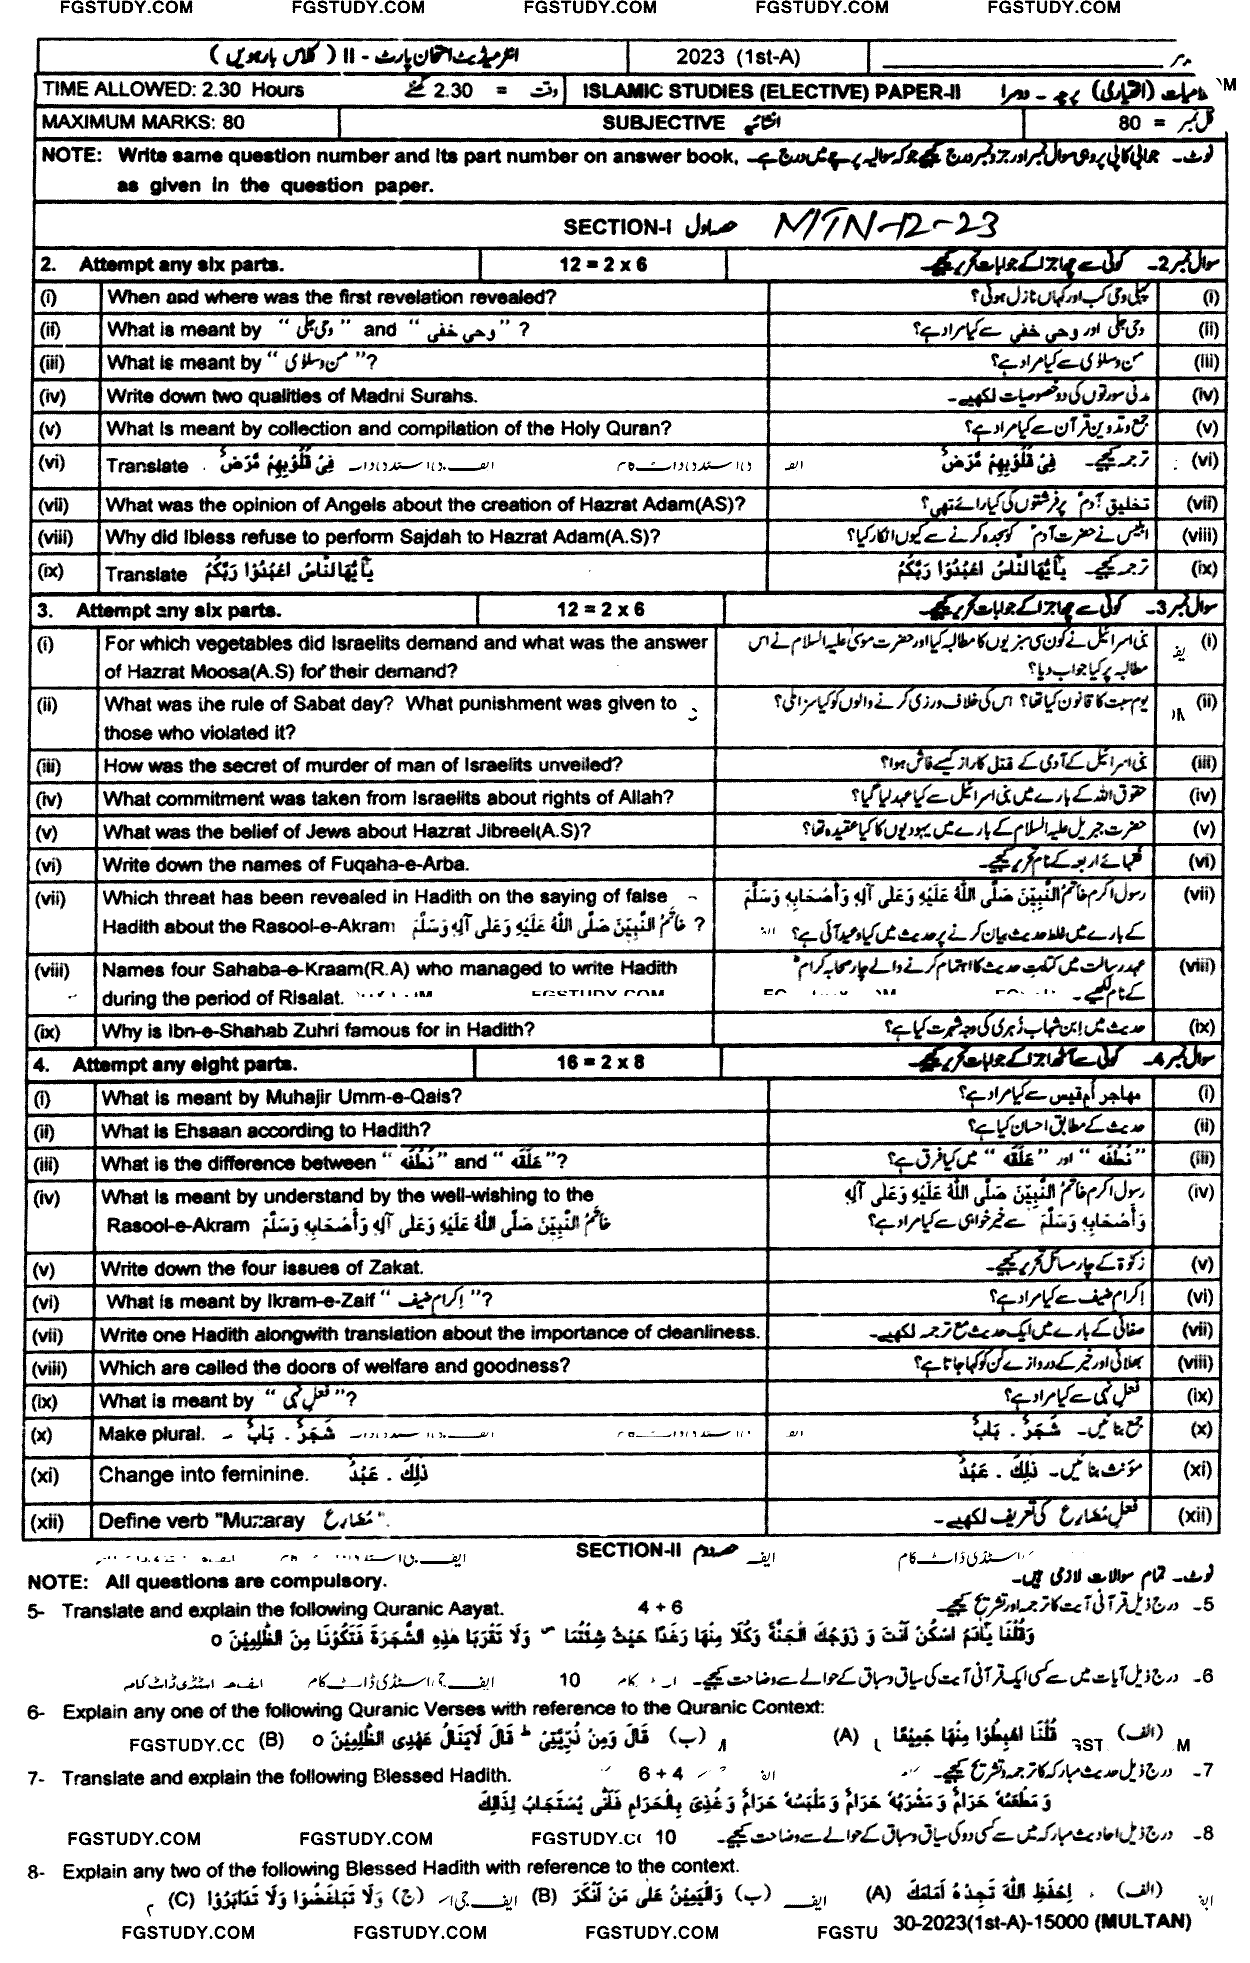 FGSTUDY.COM FGSTUDY.COM FGSTUDY.COM FGSTUDY.COM FGSTUDY.COM
2023 (1st-A) انٹرمیڈیٹ امتحان پارٹ - II (کلاس بارہویں)
TIME ALLOWED: 2.30 Hours وقت = 2.30 گھنٹے ISLAMIC STUDIES (ELECTIVE) PAPER-II اسلامیات (اختیاری) پرچہ - دوسرا
MAXIMUM MARKS: 80 SUBJECTIVE انشائیہ کل نمبر = 80
NOTE: Write same question number and its part number on answer book, نوٹ۔ جوابی کاپی پر وہی سوال نمبر اور جزو نمبر درج کیجیے جو کہ سوالیہ پرچے میں درج ہے۔
as given in the question paper.
SECTION-I حصہ اول MTN-12-23
2. Attempt any six parts. 12 = 2 x 6 سوال نمبر 2۔ کوئی سے چھ اجزا کے جوابات تحریر کیجیے۔
(i) When and where was the first revelation revealed? پہلی وحی کب اور کہاں نازل ہوئی؟ (i)
(ii) What is meant by " وحی جلی " and " وحی خفی " ? وحی جلی اور وحی خفی سے کیا مراد ہے؟ (ii)
(iii) What is meant by " من و سلوٰی "? من و سلوٰی سے کیا مراد ہے؟ (iii)
(iv) Write down two qualities of Madni Surahs. مدنی سورتوں کی دو خصوصیات لکھیے۔ (iv)
(v) What is meant by collection and compilation of the Holy Quran? جمع و تدوین قرآن سے کیا مراد ہے؟ (v)
(vi) Translate فِیْ قُلُوْبِهِمْ مَّرَضٌ ترجمہ کیجیے۔ فِیْ قُلُوْبِهِمْ مَّرَضٌ (vi)
(vii) What was the opinion of Angels about the creation of Hazrat Adam(AS)? تخلیق آدمؑ پر فرشتوں کی کیا رائے تھی؟ (vii)
(viii) Why did Ibless refuse to perform Sajdah to Hazrat Adam(A.S)? ابلیس نے حضرت آدمؑ کو سجدہ کرنے سے کیوں انکار کیا؟ (viii)
(ix) Translate یٰۤاَیُّهَا النَّاسُ اعْبُدُوْا رَبَّكُمُ ترجمہ کیجیے۔ یٰۤاَیُّهَا النَّاسُ اعْبُدُوْا رَبَّكُمُ (ix)
3. Attempt any six parts. 12 = 2 x 6 سوال نمبر 3۔ کوئی سے چھ اجزا کے جوابات تحریر کیجیے۔
(i) For which vegetables did Israelits demand and what was the answer بنی اسرائیل نے کون سی سبزیوں کا مطالبہ کیا اور حضرت موسیٰ علیہ السلام نے اس (i)
of Hazrat Moosa(A.S) for their demand? مطالبہ پر کیا جواب دیا؟
(ii) What was the rule of Sabat day? What punishment was given to یوم سبت کا قانون کیا تھا؟ اس کی خلاف ورزی کرنے والوں کو کیا سزا ملی؟ (ii)
those who violated it?
(iii) How was the secret of murder of man of Israelits unveiled? بنی اسرائیل کے آدمی کے قتل کا راز کیسے فاش ہوا؟ (iii)
(iv) What commitment was taken from Israelits about rights of Allah? حقوق اللہ کے بارے میں بنی اسرائیل سے کیا عہد لیا گیا؟ (iv)
(v) What was the belief of Jews about Hazrat Jibreel(A.S)? حضرت جبریل علیہ السلام کے بارے میں یہودیوں کا کیا عقیدہ تھا؟ (v)
(vi) Write down the names of Fuqaha-e-Arba. فقہائے اربعہ کے نام تحریر کیجیے۔ (vi)
(vii) Which threat has been revealed in Hadith on the saying of false رسول اکرم خَاتَمُ النَّبِیّٖنَ صَلَّی اللهُ عَلَیْهِ وَعَلٰی آلِهٖ وَاَصْحَابِهٖ وَسَلَّمَ (vii)
Hadith about the Rasool-e-Akram خَاتَمُ النَّبِیّٖنَ صَلَّی اللهُ عَلَیْهِ وَعَلٰی آلِهٖ وَاَصْحَابِهٖ وَسَلَّمَ ? کے بارے میں غلط حدیث بیان کرنے پر حدیث میں کیا وعید آئی ہے؟
(viii) Names four Sahaba-e-Kraam(R.A) who managed to write Hadith عہد رسالت میں کتابت حدیث کا اہتمام کرنے والے چار صحابہ کرامؓ (viii)
during the period of Risalat. FGSTUDY.COM کے نام لکھیے۔
(ix) Why is Ibn-e-Shahab Zuhri famous for in Hadith? حدیث میں ابن شہاب زُہری کی وجہ شہرت کیا ہے؟ (ix)
4. Attempt any eight parts. 16 = 2 x 8 سوال نمبر 4۔ کوئی سے آٹھ اجزا کے جوابات تحریر کیجیے۔
(i) What is meant by Muhajir Umm-e-Qais? مہاجر اُم قیس سے کیا مراد ہے؟ (i)
(ii) What is Ehsaan according to Hadith? حدیث کے مطابق احسان کیا ہے؟ (ii)
(iii) What is the difference between " نُطْفَه " and " عَلَقَه "? " نُطْفَه " اور " عَلَقَه " میں کیا فرق ہے؟ (iii)
(iv) What is meant by understand by the well-wishing to the رسول اکرم خَاتَمُ النَّبِیّٖنَ صَلَّی اللهُ عَلَیْهِ وَعَلٰی آلِهٖ (iv)
Rasool-e-Akram خَاتَمُ النَّبِیّٖنَ صَلَّی اللهُ عَلَیْهِ وَعَلٰی آلِهٖ وَاَصْحَابِهٖ وَسَلَّمَ وَاَصْحَابِهٖ وَسَلَّمَ سے خیر خواہی سے کیا مراد ہے؟
(v) Write down the four issues of Zakat. زکوٰۃ کے چار مسائل تحریر کیجیے۔ (v)
(vi) What is meant by Ikram-e-Zaif " اِکرام ضیف "? اِکرام ضیف سے کیا مراد ہے؟ (vi)
(vii) Write one Hadith alongwith translation about the importance of cleanliness. صفائی کے بارے میں ایک حدیث مع ترجمہ لکھیے۔ (vii)
(viii) Which are called the doors of welfare and goodness? بھلائی اور خیر کے دروازے کن کو کہا جاتا ہے؟ (viii)
(ix) What is meant by " فعل نہی "? فعل نہی سے کیا مراد ہے؟ (ix)
(x) Make plural. شَجَرٌ . بَابٌ جمع بنائیں۔ شَجَرٌ . بَابٌ (x)
(xi) Change into feminine. ذٰلِكَ . عَبْدٌ مؤنث بنائیں۔ ذٰلِكَ . عَبْدٌ (xi)
(xii) Define verb "Muzaray مُضَارِع ". فعل مُضَارِع کی تعریف لکھیے۔ (xii)
SECTION-II حصہ دوم
NOTE: All questions are compulsory. نوٹ۔ تمام سوالات لازمی ہیں۔
5- Translate and explain the following Quranic Aayat. 4 + 6 5۔ درج ذیل قرآنی آیت کا ترجمہ اور تشریح کیجیے۔
وَقُلْنَا یٰۤاٰدَمُ اسْكُنْ اَنْتَ وَ زَوْجُكَ الْجَنَّةَ وَكُلَا مِنْهَا رَغَدًا حَیْثُ شِئْتُمَا وَلَا تَقْرَبَا هٰذِهِ الشَّجَرَةَ فَتَكُوْنَا مِنَ الظّٰلِمِیْنَ o
10 6۔ درج ذیل آیات میں سے کسی ایک قرآنی آیت کی سیاق و سباق کے حوالے سے وضاحت کیجیے۔
6- Explain any one of the following Quranic Verses with reference to the Quranic Context:
FGSTUDY.CC (B) قَالَ وَمِنْ ذُرِّیَّتِیْ ؕ قَالَ لَایَنَالُ عَهْدِی الظّٰلِمِیْنَ o (ب) (A) قُلْنَا اهْبِطُوْا مِنْهَا جَمِیْعًا (الف)
7- Translate and explain the following Blessed Hadith. 6 + 4 7۔ درج ذیل حدیث مبارکہ کا ترجمہ و تشریح کیجیے۔
وَ مَطْعَمُهٗ حَرَامٌ وَ مَشْرَبُهٗ حَرَامٌ وَ مَلْبَسُهٗ حَرَامٌ وَ غُذِیَ بِالْحَرَامِ فَاَنّٰی یُسْتَجَابُ لِذٰلِكَ
FGSTUDY.COM FGSTUDY.COM FGSTUDY.C 10 8۔ درج ذیل احادیث مبارکہ میں سے کسی دو کی سیاق و سباق کے حوالے سے وضاحت کیجیے۔
8- Explain any two of the following Blessed Hadith with reference to the context.
(C) وَلَا تَبَاغَضُوْا وَلَا تَدَابَرُوْا (ج) (B) وَالْیَمِیْنُ عَلٰی مَنْ اَنْكَرَ (ب) (A) اِحْفَظِ اللهَ تَجِدْهُ اَمَامَكَ (الف)
FGSTUDY.COM FGSTUDY.COM FGSTUDY.COM FGSTU 30-2023(1st-A)-15000 (MULTAN)